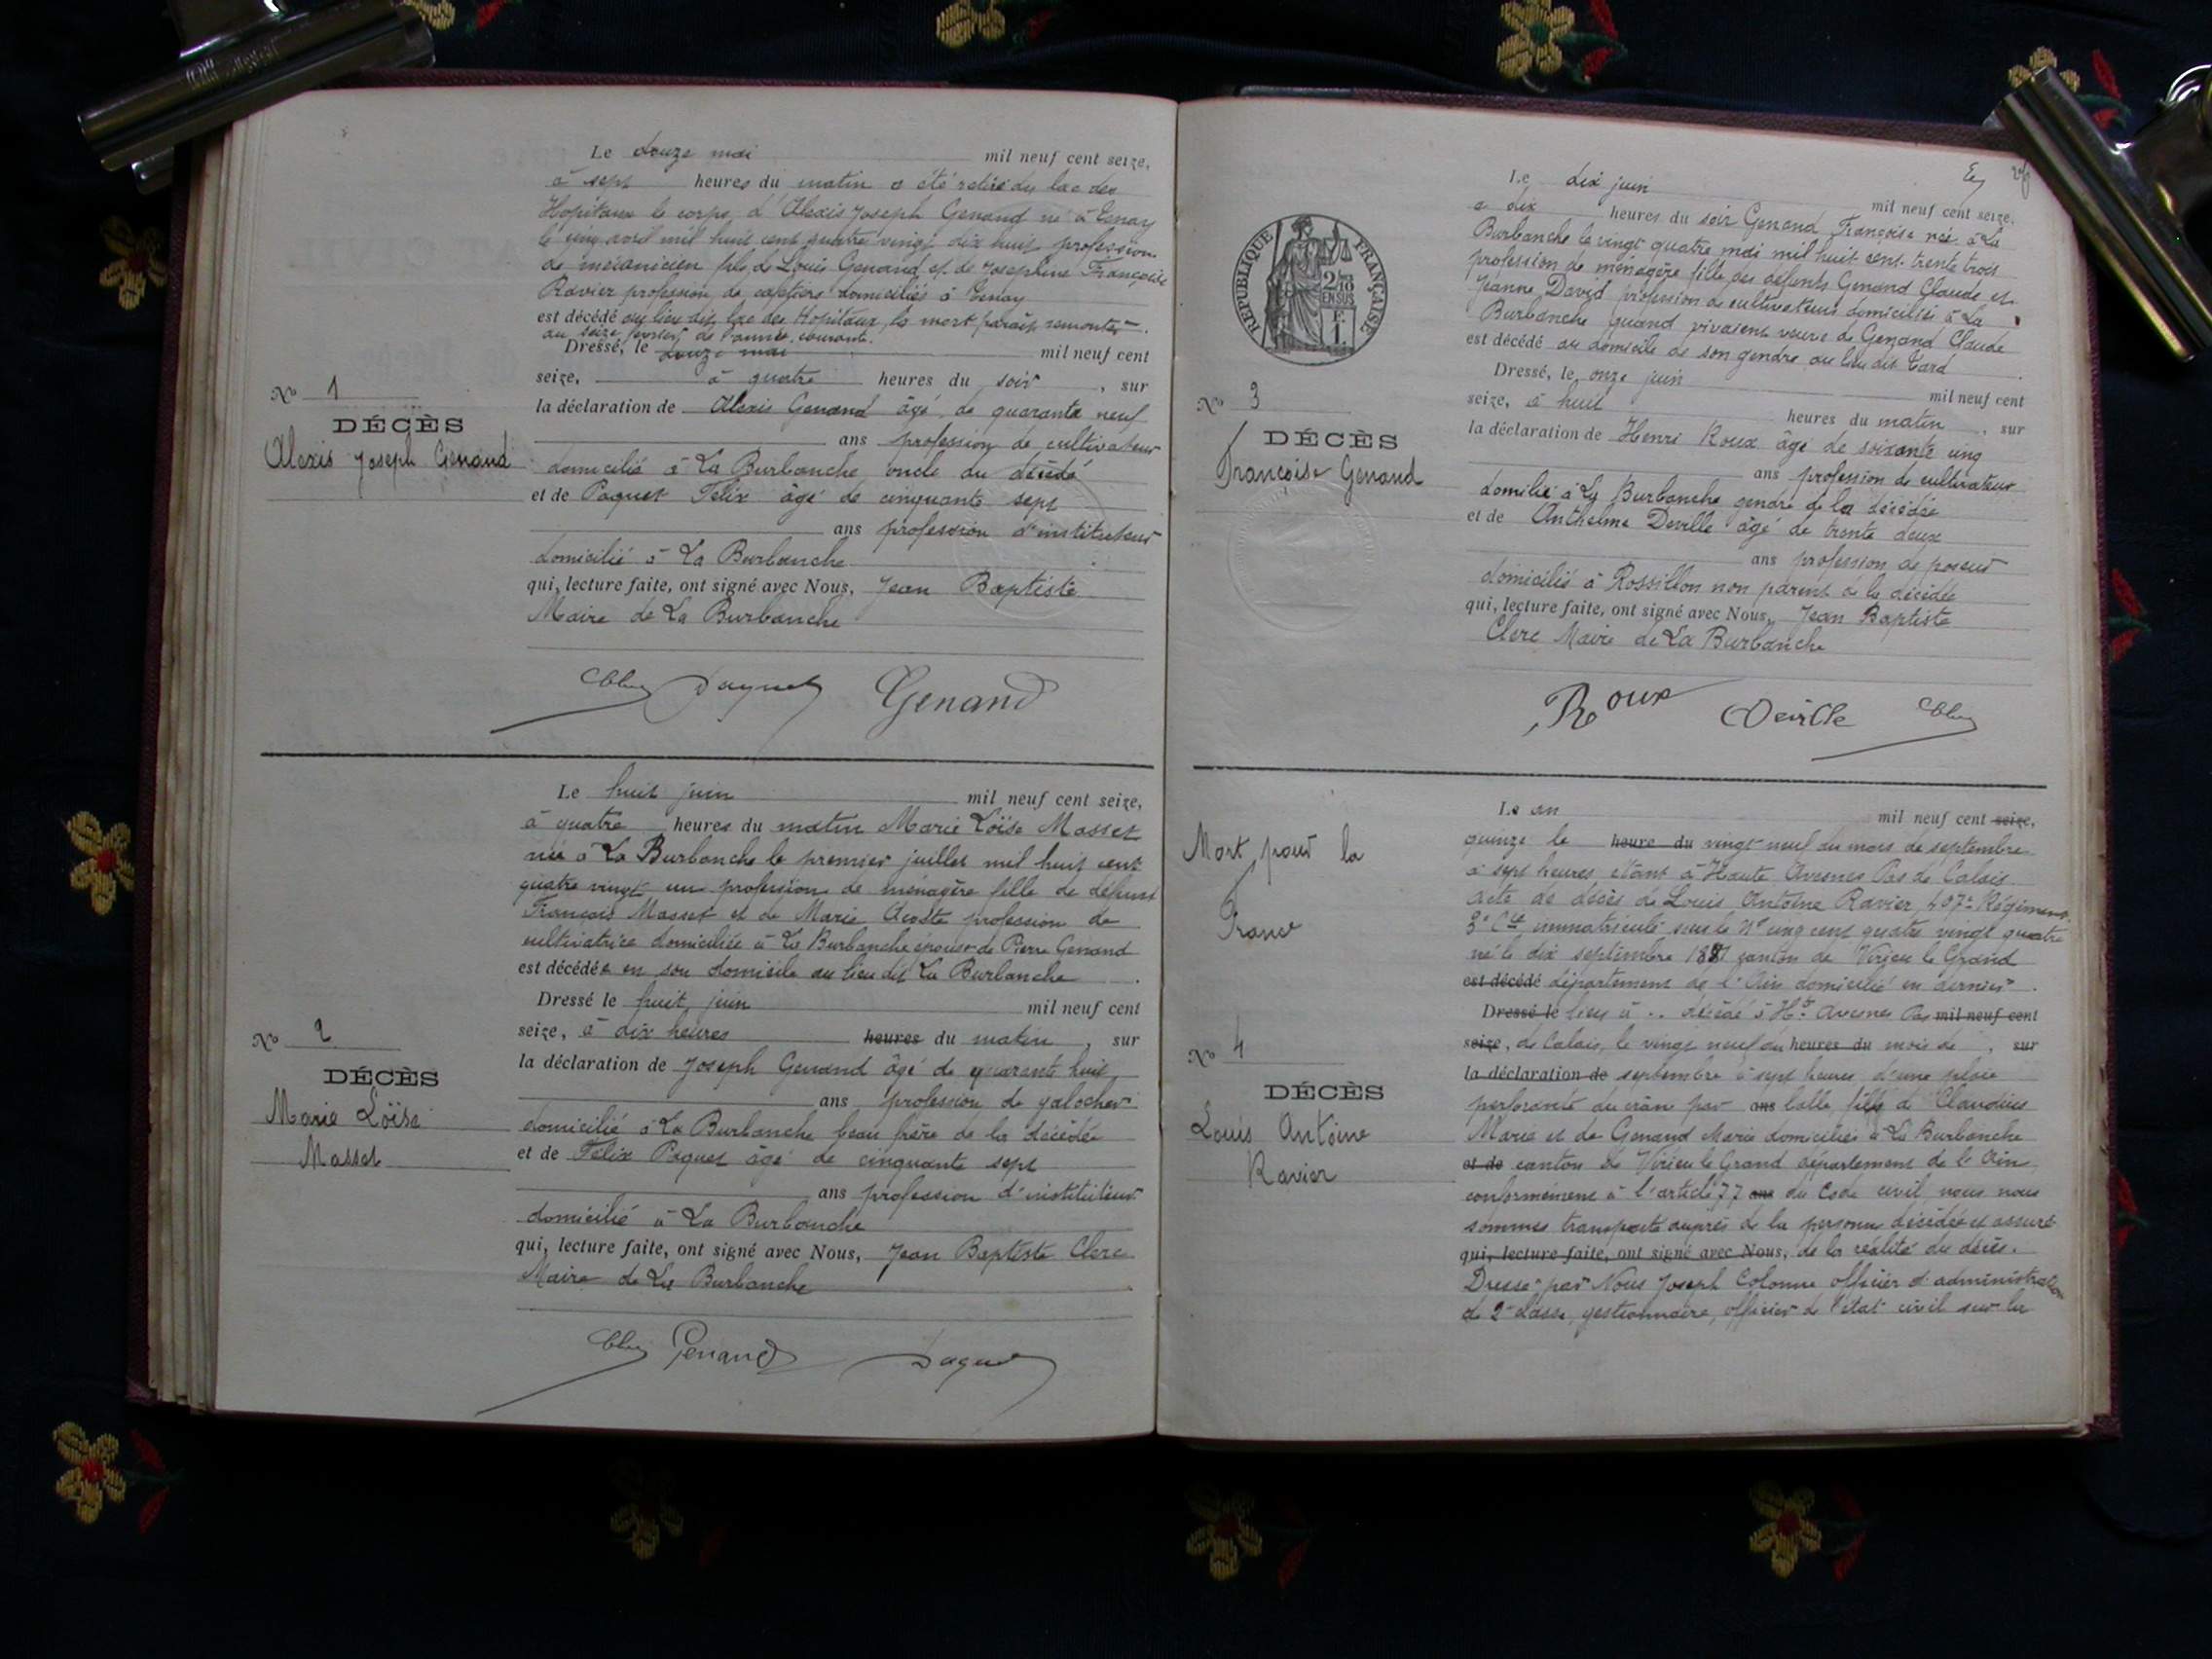 Le douze mai mil neuf cent seize,
à sept heures du matin a été retiré du lac des
Hopitaux le corps d'Alexis Joseph Genand né à Tenay
le cinq avril mil huit cent quatre vingt dix huit profession
de mécanicien fils de Louis Genand et de Joséphine Françoise
Ravier profession de domiciliés à Tenay
est décédé au lieu dit lac des Hopitaux, la mort paraît remonter
au seize février de l'année courante.
Dressé, le douze mai mil neuf cent
seize, à quatre heures du soir, sur
la déclaration de Alexis Genand âgé de quarante neuf
ans profession de cultivateur
domicilié à La Burbanche oncle du décédé
et de Paquet Félix âgé de cinquante sept
ans profession d'instituteur
domicilié à La Burbanche
qui, lecture faite, ont signé avec Nous, Jean Baptiste
Maire de La Burbanche
Paquet Genand
No 1
DÉCÈS
Alexis Joseph Genand
Le huit juin mil neuf cent seize,
à quatre heures du matin Marie Loïse Masset
née à La Burbanche le premier juillet mil huit cent
quatre vingt un profession de ménagère fille de défunt
François Masset et de Marie profession de
cultivatrice domiciliée à La Burbanche épouse de Pierre Genand
est décédée en son domicile au lieu dit La Burbanche
Dressé le huit juin mil neuf cent
seize, à dix heures heures du matin, sur
la déclaration de Joseph Genand âgé de quarante huit
ans profession de galocher
domicilié à La Burbanche beau frère de la décédée
et de Félix Paquet âgé de cinquante sept
ans profession d'instituteur
domicilié à La Burbanche
qui, lecture faite, ont signé avec Nous, Jean Baptiste Clerc
Maire de La Burbanche
Genand Paquet
No 2
DÉCÈS
Marie Loïse
Masset
Le dix juin mil neuf cent seize,
a dix heures du soir Genand Françoise née à La
Burbanche le vingt quatre mai mil huit cent trente trois
profession de ménagère fille des défunts Genand Claude et
Jeanne David profession de cultivateurs domiciliés à La
Burbanche quand vivaient veuve de Genand Claude
est décédé au domicile de son gendre au lieu dit Tard
Dressé, le onze juin mil neuf cent
seize, à huit heures du matin, sur
la déclaration de Henri Roux âgé de soixante cinq
ans profession de cultivateur
domilié à La Burbanche gendre de la décédée
et de Anthelme Deville âgé de trente deux
ans profession de poseur
domicilié à Rossillon non parent de la décédée
qui, lecture faite, ont signé avec Nous, Jean Baptiste
Clerc Maire de La Burbanche
Roux Deville
REPUBLIQUE FRANÇAISE
2/10 EN SUS
F. 1.
No 3
DÉCÈS
Françoise Genand
Mort pour la
France
Le an mil neuf cent seize,
quinze le heure du vingt neuf du mois de septembre
à sept heures étant à Haute Avesnes Pas de Calais
acte de décès de Louis Antoine Ravier, 407e Régiment
3e Cie immatriculé sous le No cinq cent quatre vingt quatre
né le dix septembre 1881 canton de Virieu le Grand
est décédé département de l'Ain domicilié en dernier
Dressé le lieu à .. décédé à Hte Avesnes Pas mil neuf cent
seize, de Calais, le vingt neuf du heures du mois de, sur
la déclaration de septembre à sept heures, d'une plaie
perforante du crâne par ans balle, fils de Claudius
Marie et de Genand Marie domiciliés à La Burbanche
et de canton de Virieu le Grand département de l'Ain,
conformément à l'article 77 ans du Code civil, nous nous
sommes transporté auprès de la personne décédée et assuré
qui, lecture faite, ont signé avec Nous, de la réalité du décès.
Dressé par Nous Joseph Colonne officier d'administration
de 2e classe, gestionnaire, officier de l'état civil sur la
No 4
DÉCÈS
Louis Antoine
Ravier